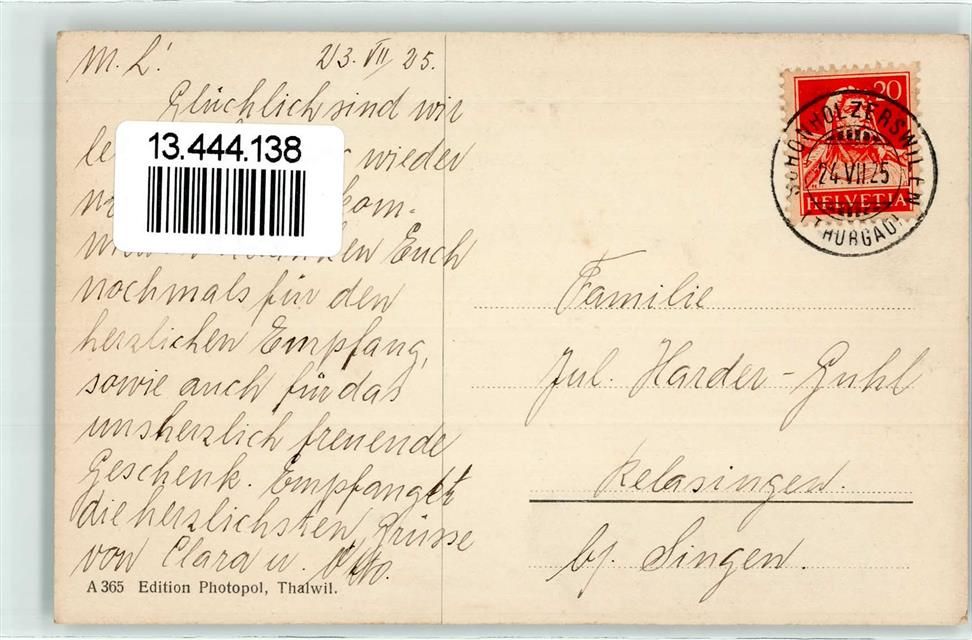 M. L!
23. VII 25.
Glücklich sind wir
wieder
kom-
Euch
nochmals für den
herzlichen Empfang,
sowie auch für das
uns herzlich freuende
Geschenk. Empfanget
die herzlichsten Grüsse
von Clara u. Otto.
A 365 Edition Photopol, Thalwil.
13.444.138
20
HELVETIA
SCHÖNHOLZERSWILEN
24.VII.25
(THURGAU)
Familie
Jul. Harder-Guhl
Relasingen.
b/ Singen.